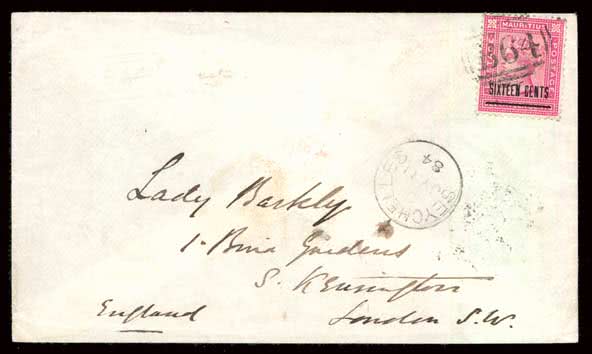 MAURITIUS
POSTAGE
B64
SIXTEEN CENTS
SEYCHELLES
84
Lady Barkly
1. Bina Gardens
S. Kensington
England London S.W.